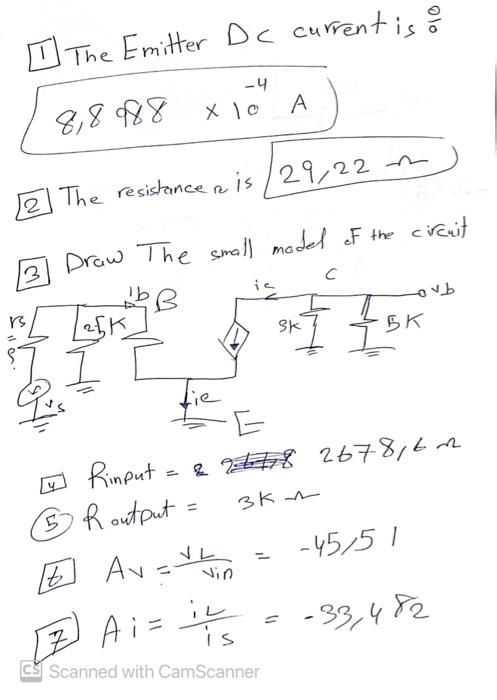 1 The Emitter DC current is :
8,8988 × 10⁻⁴ A
2 The resistance r is 29,22 Ω
3 Draw The small model of the circuit
ib B ic C
rs 25K 3K 5K vb
vs ie
E
4 Rinput = 2678,6 Ω
5 Routput = 3K Ω
6 Av = vL/vin = -45,51
7 Ai = iL/is = -33,482
CS Scanned with CamScanner